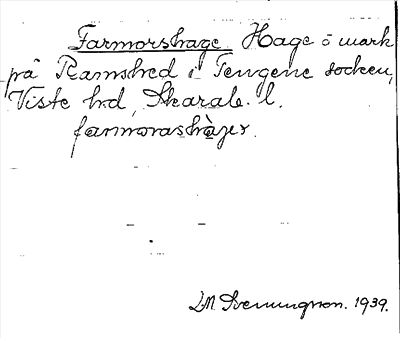 Farmorshage Hage o mark
på Ramshed i Tengene socken,
Viste hd, Skarab. l.
farmorashàjer.
D.M. Svenungsson. 1939.